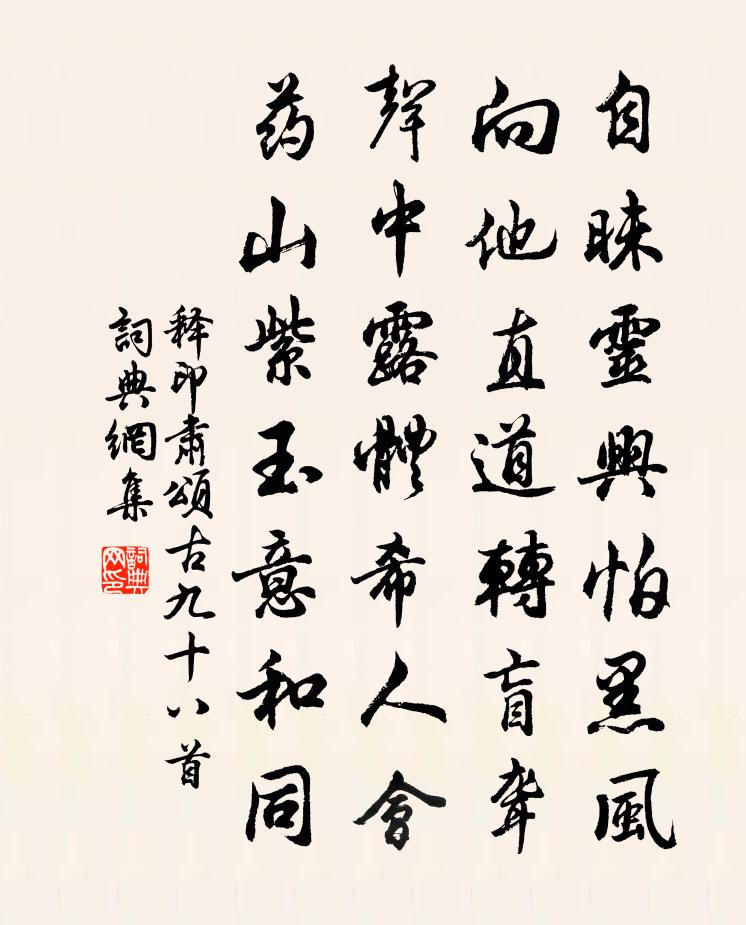 自昧靈興怕黑風
向他直道轉盲聋
聲中露體希人會
药山紫玉意和同
释印肃頌古九十八首
詞典網集
詞典网印